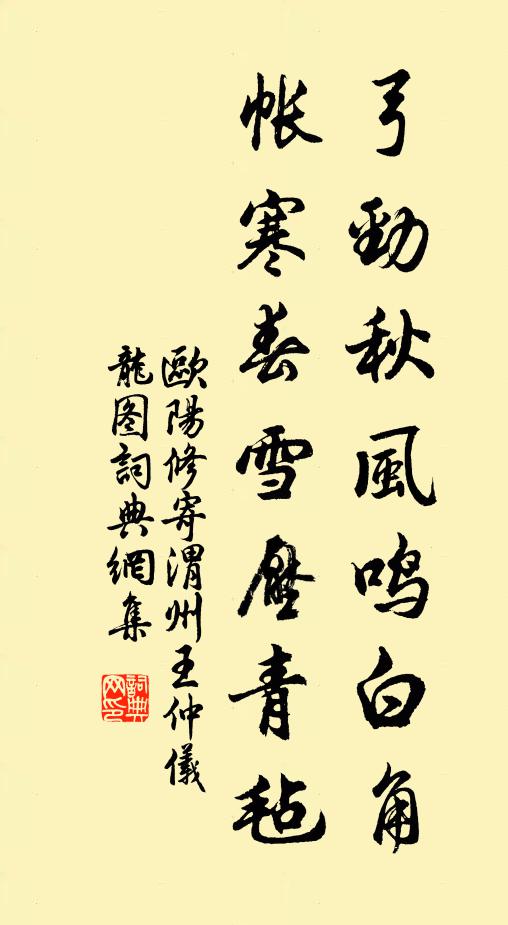 弓勁秋風鳴白角
帳寒春雪壓青毡
歐陽修寄渭州王仲儀
龍图詞典網集
詞典
网印